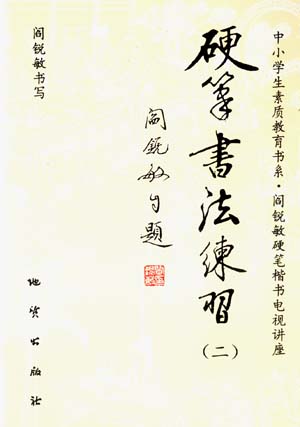 中小学生素质教育书系·阎锐敏硬笔楷书电视讲座
硬筆書法練習
(二)
阎銳敏自題
阎锐敏书写
地质出版社